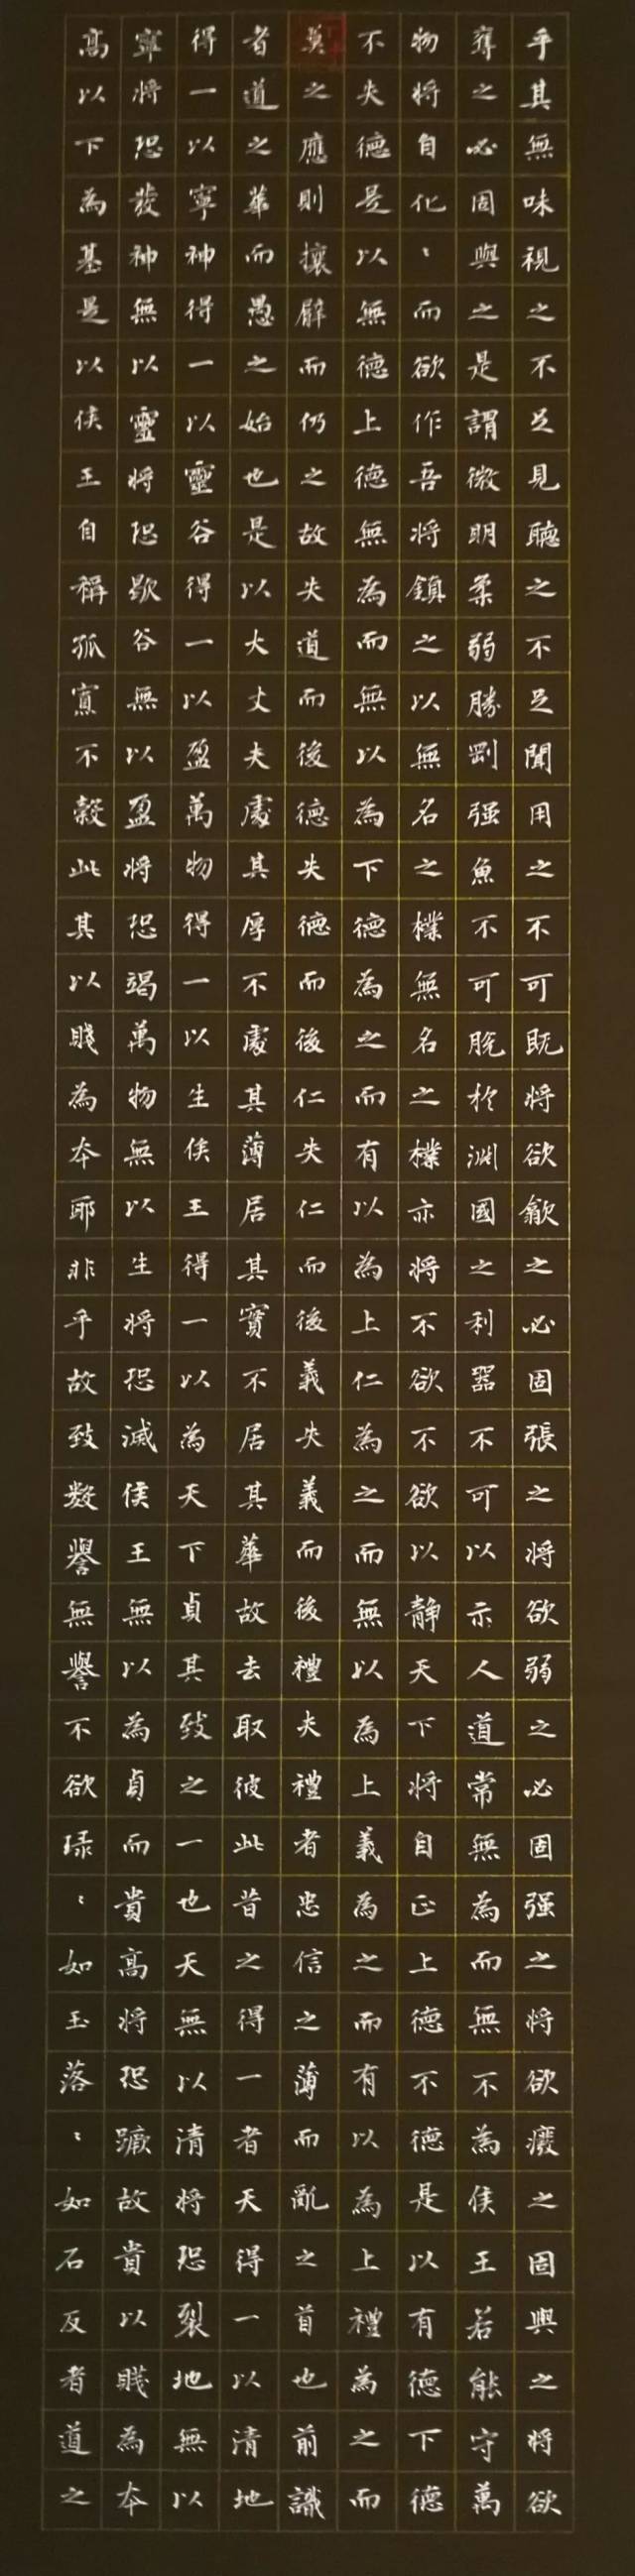 乎其無味視之不足見聽之不足聞用之不可既將欲歙之必固張之將欲弱之必固强之將欲廢之固與之將欲
奪之必固與之是謂微明柔弱勝剛强魚不可脫於淵國之利器不可以示人道常無為而無不為侯王若能守萬
物將自化〻而欲作吾將鎮之以無名之樸無名之樸亦將不欲不欲以静天下將自正上德不德是以有德下德
不失德是以無德上德無為而無以為下德為之而有以為上仁為之而無以為上義為之而有以為上禮為之而
莫之應則攘臂而仍之故失道而後德失德而後仁失仁而後義失義而後禮夫禮者忠信之薄而亂之首也前識
者道之華而愚之始也是以大丈夫處其厚不處其薄居其實不居其華故去取彼此昔之得一者天得一以清地
得一以寧神得一以靈谷得一以盈萬物得一以生侯王得一以為天下貞其致之一也天無以清將恐裂地無以
寧將恐發神無以靈將恐歇谷無以盈將恐竭萬物無以生將恐滅侯王無以為貞而貴高將恐蹶故貴以賤為本
高以下為基是以侯王自稱孤寡不穀此其以賤為本耶非乎故致數譽無譽不欲琭〻如玉落〻如石反者道之